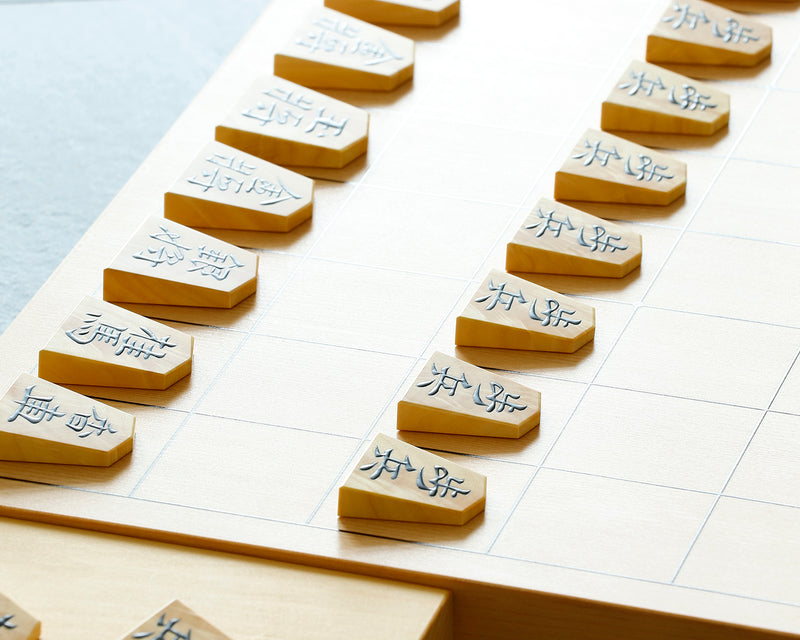 金将
王将
金将
銀将
桂馬
香車
歩兵
歩兵
歩兵
歩兵
歩兵
歩兵
歩兵